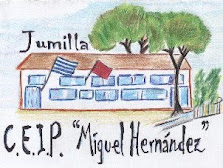 Jumilla
C.E.I.P. "Miguel Hernández"